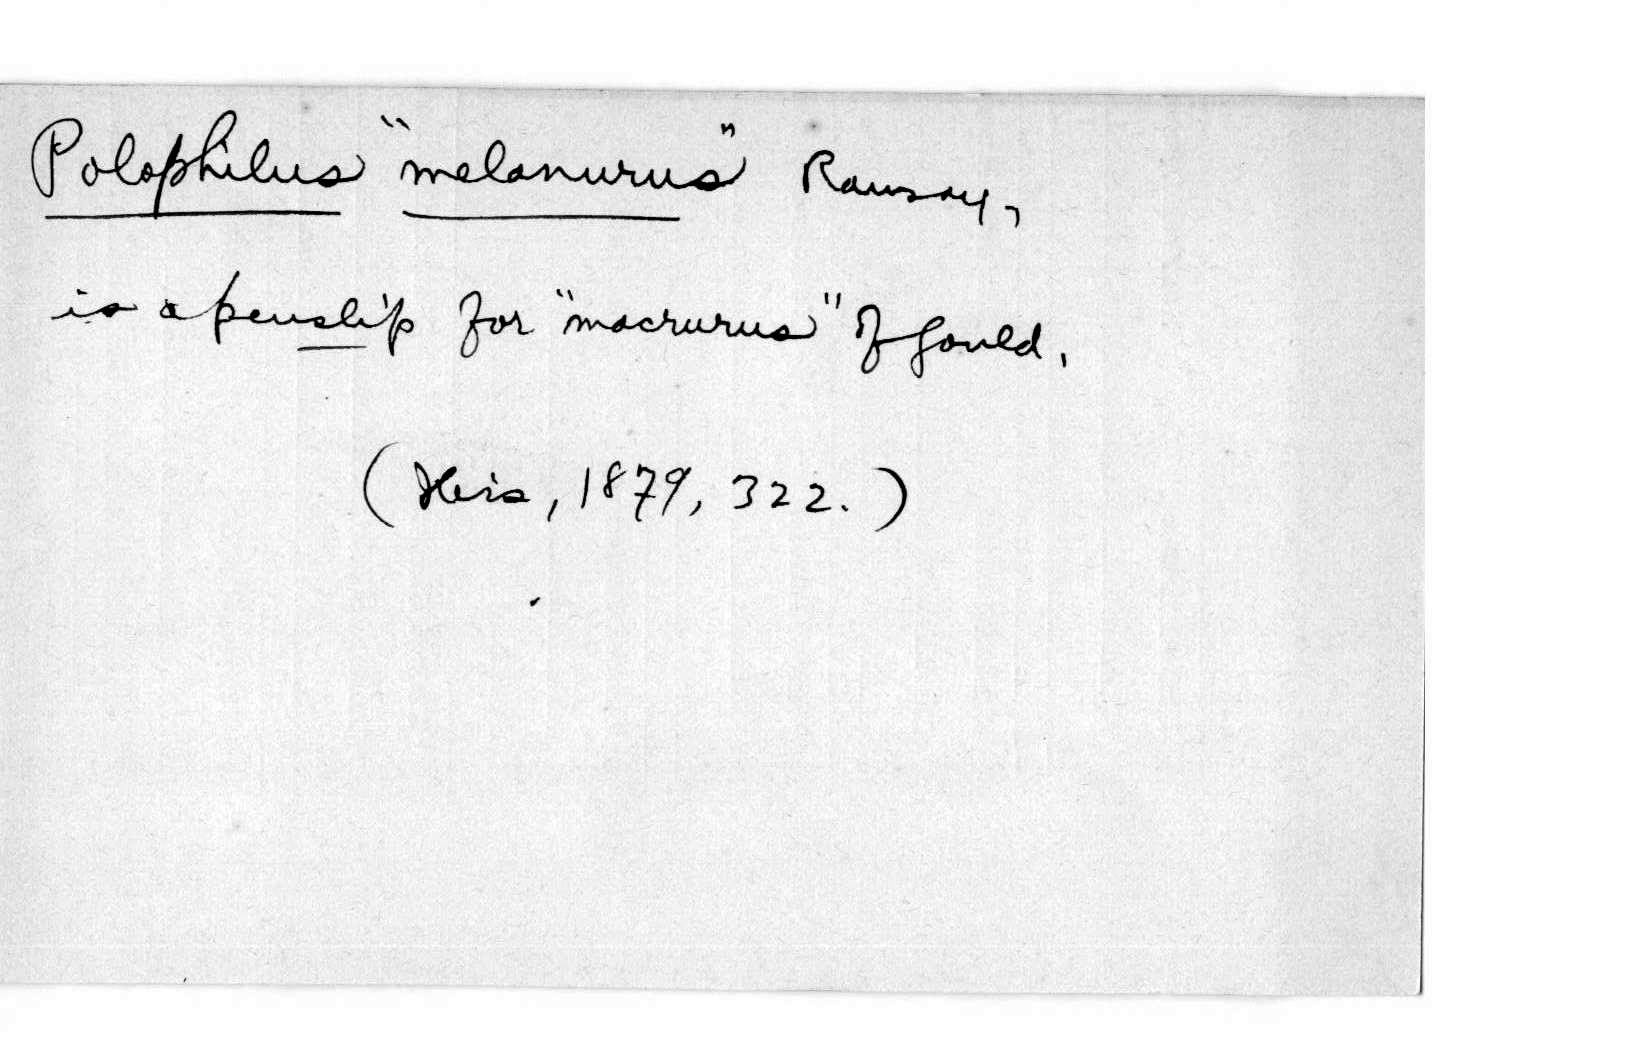 Polophilus "melanurus" Ramsay,
is a penslip for "macrurus" of Gould.
(Ibis, 1879, 322.)